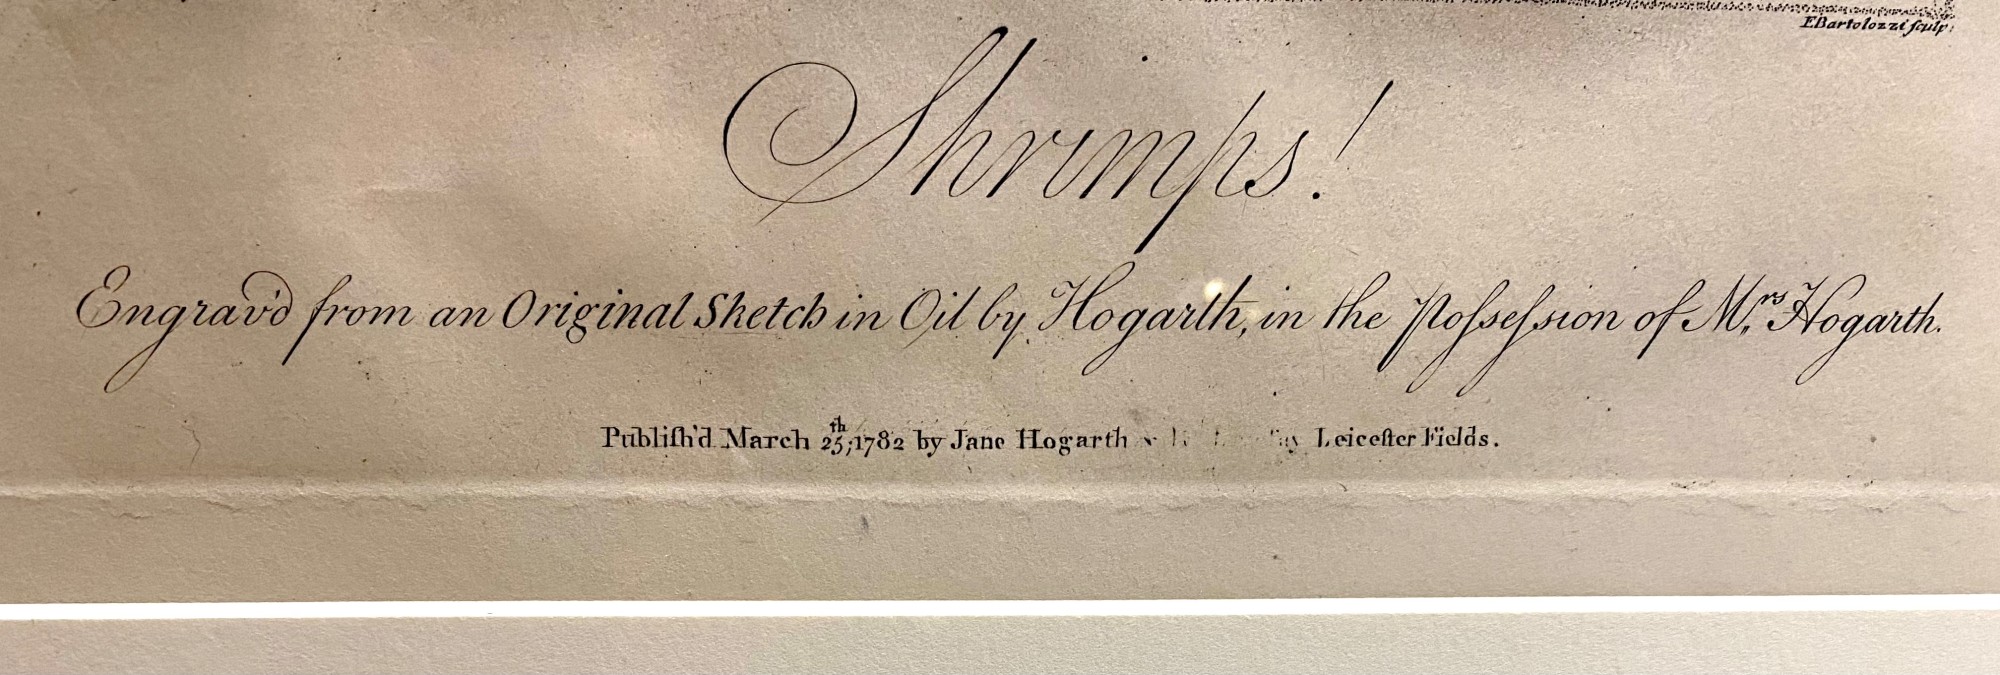 FBartolozzi sculp.
Shrimps!
Engrav'd from an Original Sketch in Oil by Hogarth, in the Poſseſsion of Mrs. Hogarth.
Publiſh'd March 25th, 1782 by Jane Hogarth Leiceſter Fields.